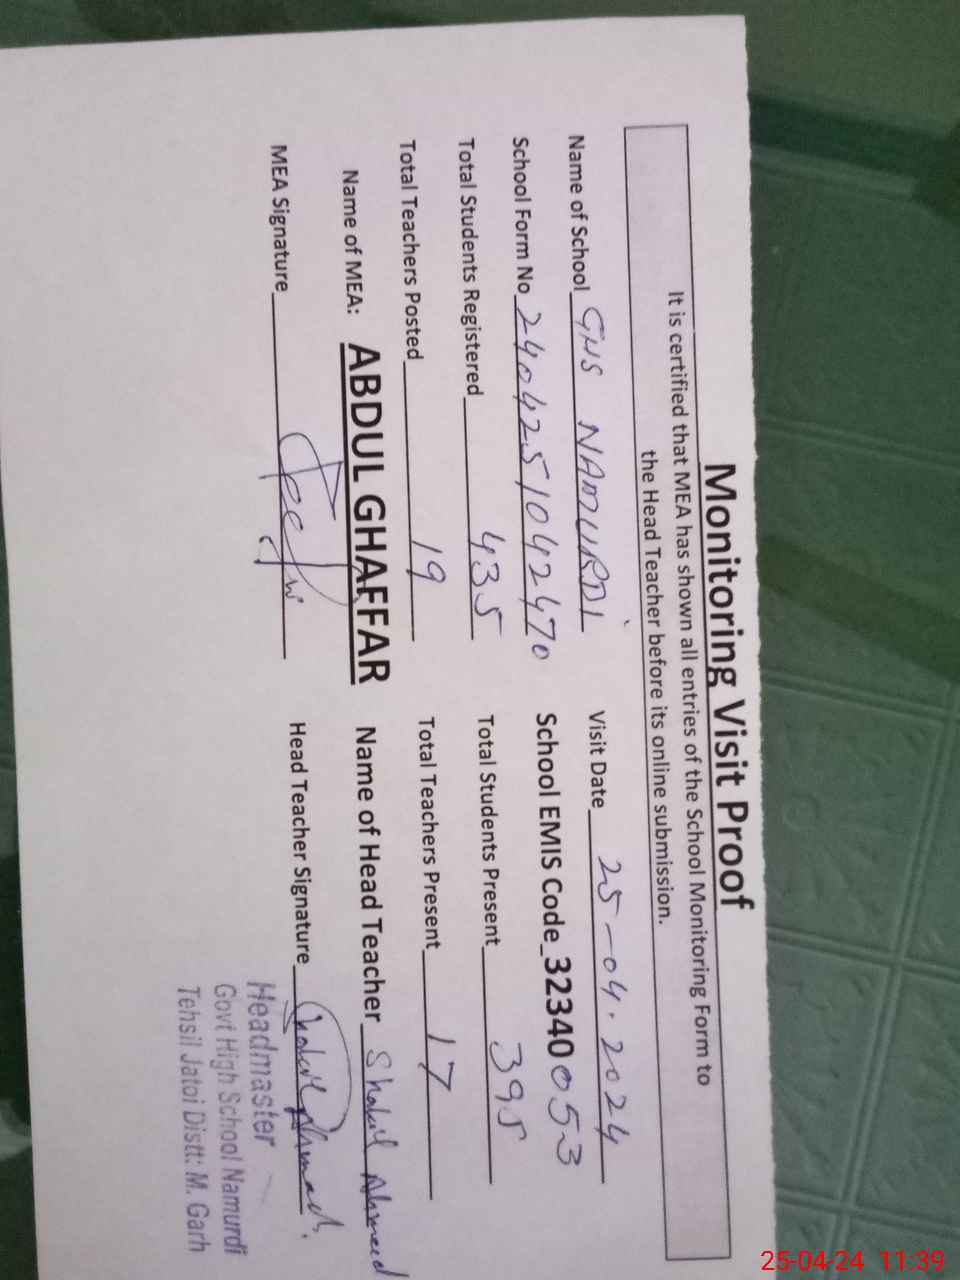 Monitoring Visit Proof
It is certified that MEA has shown all entries of the School Monitoring Form to
the Head Teacher before its online submission.
Name of School GHS NAMURDI Visit Date 25-04-2024
School Form No 2404251042470 School EMIS Code 32340053
Total Students Registered 435 Total Students Present 395
Total Teachers Posted 19 Total Teachers Present 17
Name of MEA: ABDUL GHAFFAR Name of Head Teacher Shakil Ahmeed
MEA Signature Head Teacher Signature Shakil Ahmad.
Headmaster
Govt High School Namurdi
Tehsil Jatoi Distt: M. Garh
25-04-24 11:39